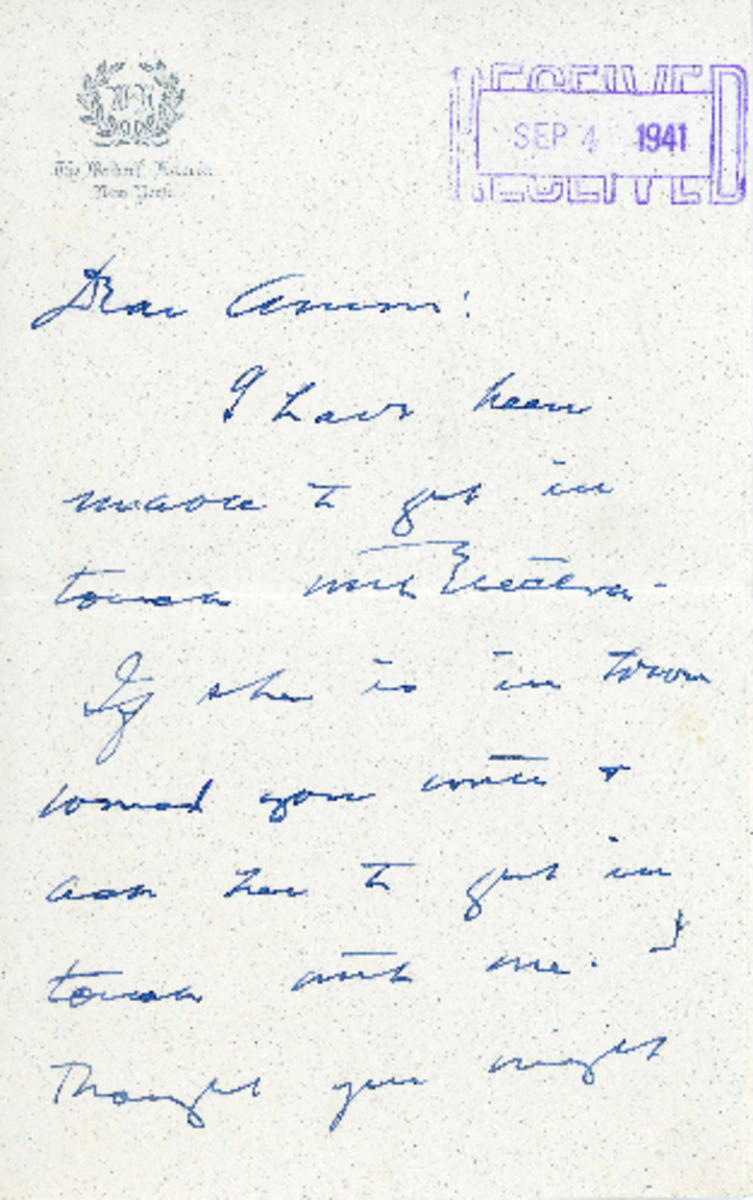 The Waldorf-Astoria
New York
RECEIVED
SEP 4 1941
RECEIVED
Dear Amon:
I have been
unable to get in
touch with Electra.
If she is in town
would you write &
ask her to get in
touch with me. I
thought you might